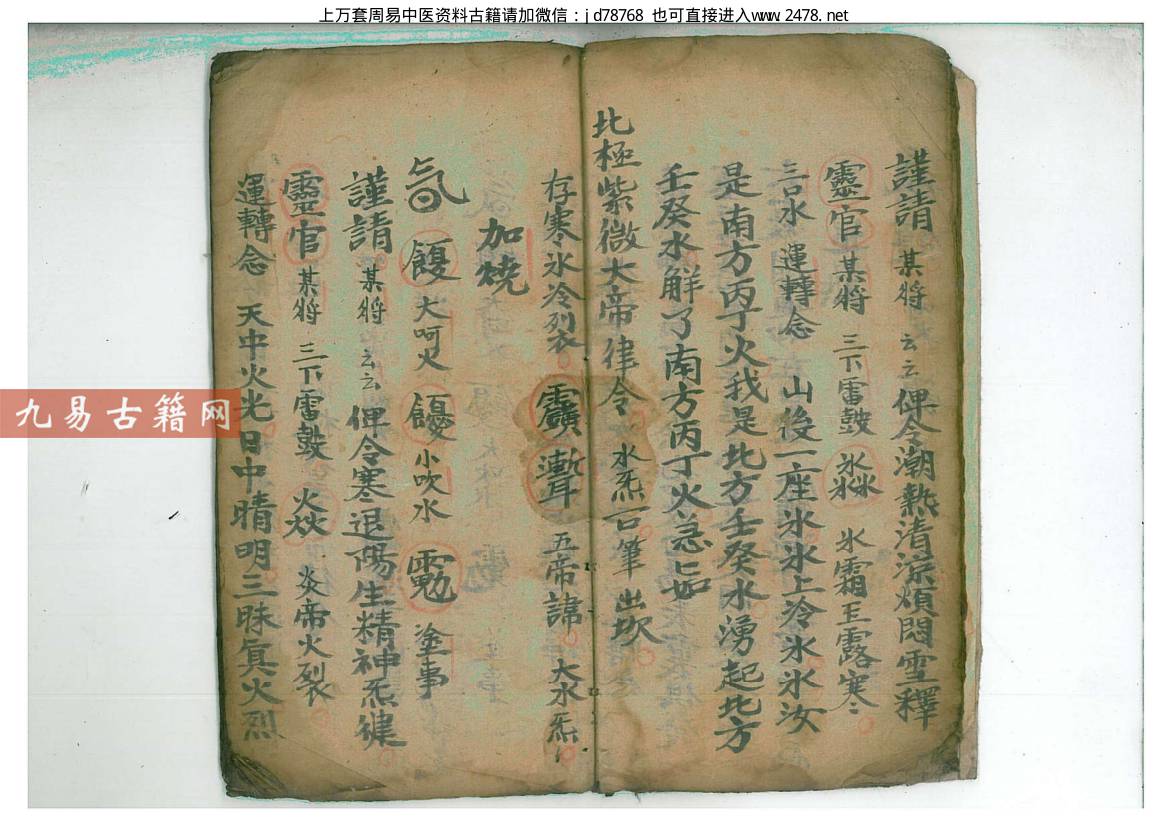 上万套周易中医资料古籍请加微信：jd78768 也可直接进入www.2478.net
謹請 某将 云云 俾令潮熱清涼煩悶雪釋
靈官 某将 三下雷鼓 冰霜玉露寒〻
三口水 運轉念 山後一座氷氷上冷氷氷汝
是南方丙丁火我是北方壬癸水湧起北方
壬癸水解了南方丙丁火急急如
北極紫微大帝律令 水炁一口筆 出坎
存寒氷冷列衣 五帝諱 大水炁
加燒
大呵火 小吹水 塗事
謹請 某将 云云 俾令寒退陽生精神炁健
靈官 某将 三下雷鼓 炎帝火裂
運轉念 天中火光日中晴明三昧真火烈
九易古籍网